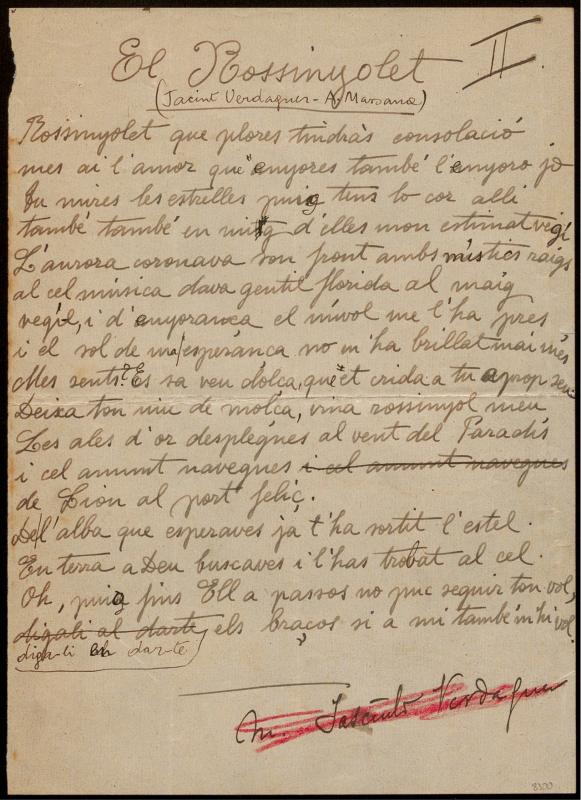 El Rossinyolet
II
(Jacint Verdaguer - A. Marsana)
Rossinyolet que plores tindràs consolació
mes ai l'amor que enyores també l'enyoro jo
tu mires les estrelles puig tens lo cor allí
també també en mitg d'elles mon estimat vegí
L'aurora coronava son front ambs místics raigs
al cel música dava gentil florida al maig
vegíl, i d'enyorança el núvol me l'ha pres
i el sol de m'esperança no m'ha brillat mai més
Mes sents? Es sa veu dolça, que et crida a tu aprop seu
Deixa ton niu de molça, vina rossinyol meu
Les ales d'or desplegues al vent del Paradís
i cel amunt navegues i cel amunt navegues
de Sion al port feliç.
De l'alba que esperaves ja t'ha sortit l'estel.
En terra a Deu buscaves i l'has trobat al cel.
Oh, puig fins Ell a passos no puc seguir ton vol,
digali al darte, els braços si a mi també m'hi vol.
diga-li en dar-te
M. Jascinto Verdaguer